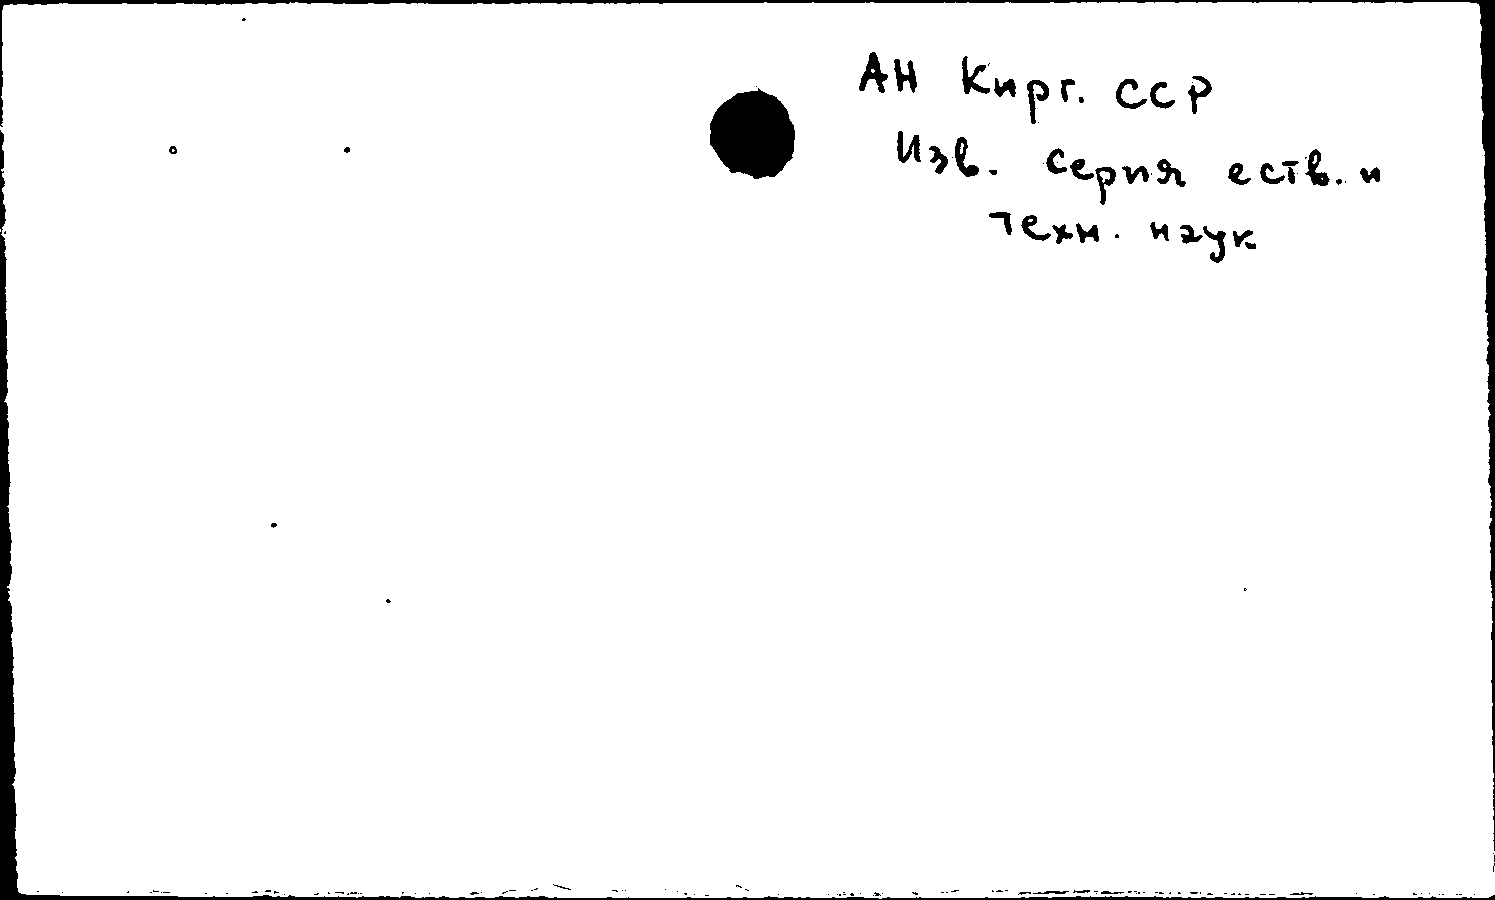 АН Кирг. ССР
Изв. Серия еств. и
техн. наук